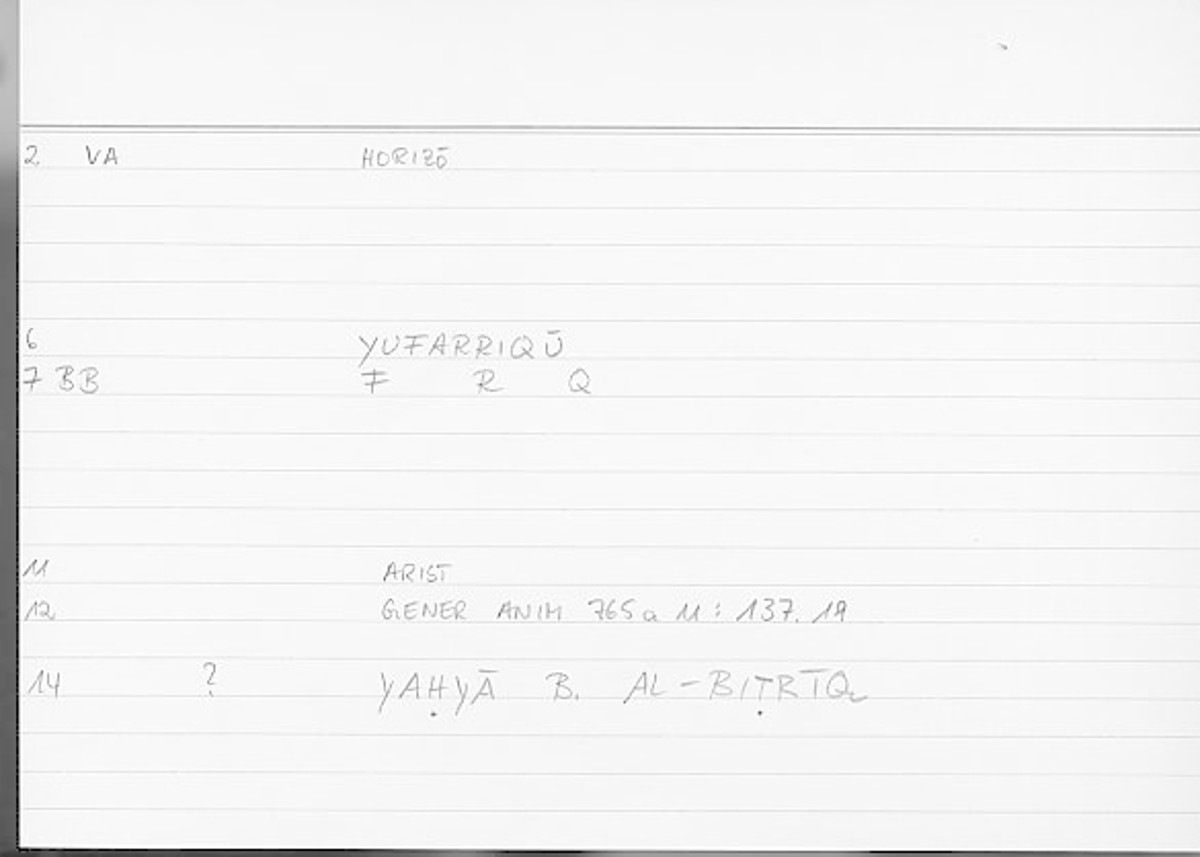 2 VA HORIZŌ
6 YUFARRIQŪ
7 BB F R Q
11 ARIST
12 GENER ANIM 765 a 11 : 137. 19
14 ? YAḤYĀ B. AL-BIṬRĪQ